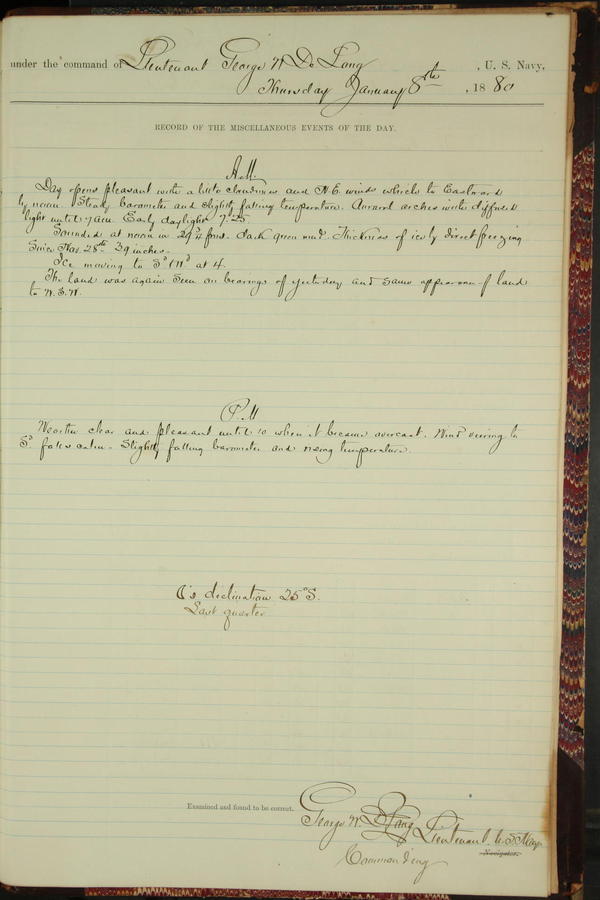 under the command of Lieutenant George W. De Long , U. S. Navy,
Thursday January 8th , 1880
RECORD OF THE MISCELLANEOUS EVENTS OF THE DAY.
A.M.
Day opens pleasant with a little cloudiness and N.E. winds which to Eastward
by noon. Steady barometer and slightly falling temperature. Auroral arches with diffused
light until 7 am. Early daylight 7.25
Sounded at noon in 29 ¼ fms. dark green mud. Thickness of ice by direct freezing
Since Nov. 28th 39 inches.
Ice moving to Sd & Wd at 4.
The land was again seen on bearings of yesterday and same appearance of land
to W.S.W.
P.M
Weather clear and pleasant until 10 when it became overcast. Wind veering to
Sd falls calm. Slightly falling barometer and rising temperature.
☾'s declination 25° S.
Last quarter
Examined and found to be correct.
George W. De Long Lieutenant U.S. Navy
Navigator.
Commanding